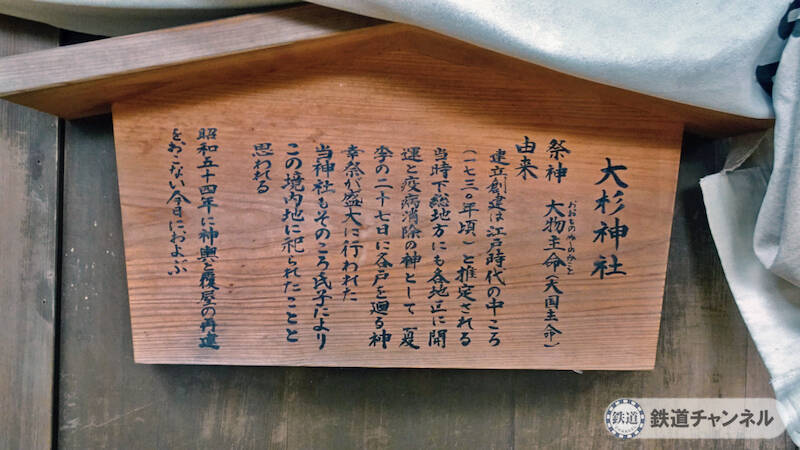 大杉神社
祭神 大物主命(大国主命)
おおものぬしのみこと
由来
建立創建は江戸時代の中ころ
(一七三〇年頃)と推定される
当時下総地方にも各地区に開
運と疫病消除の神として 夏
季の二十七日に各戸を廻る神
幸祭が盛大に行われた
当神社もそのころ氏子により
この境内地に祀られたことと
思われる
昭和五十四年に神輿と覆屋の再建
をおこない今日におよぶ
鉄道 鉄道チャンネル